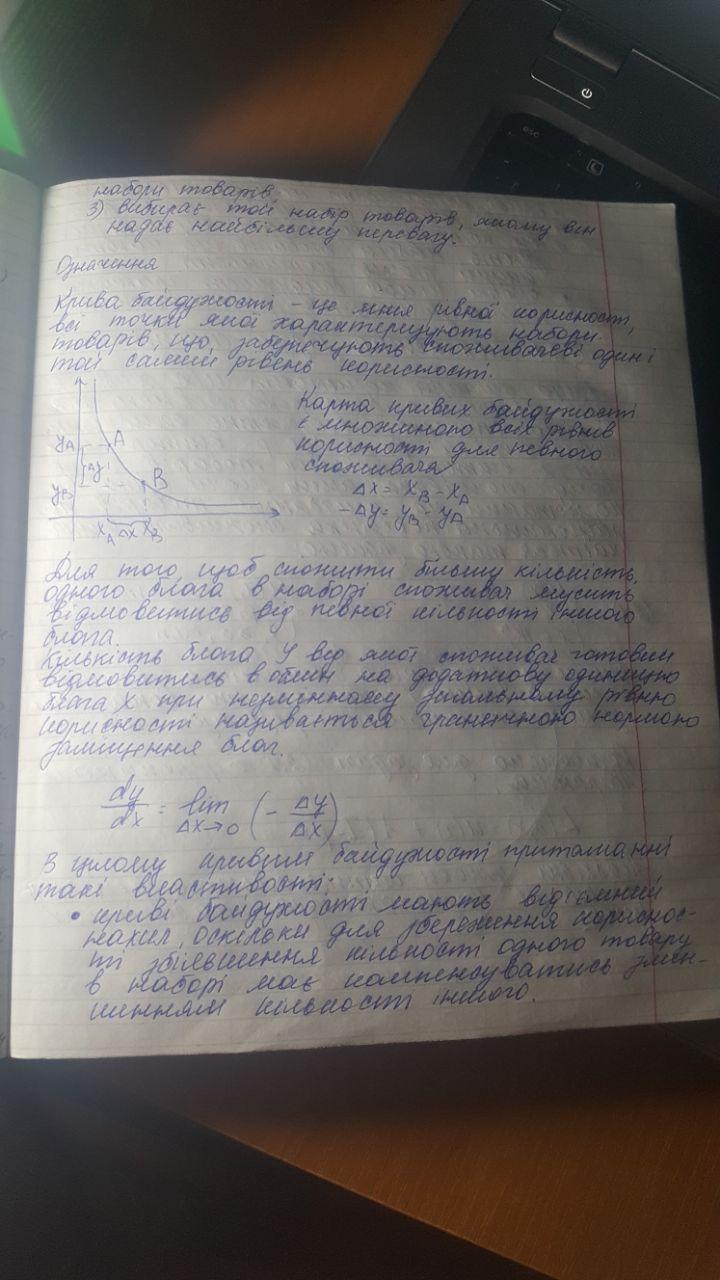 набори товарів.
3) вибирає той набір товарів, якому він
надає найбільшу перевагу.
Означення
Крива байдужості – це лінія рівної корисності,
всі точки якої характеризують набори
товарів, що забезпечують споживачеві один і
той самий рівень корисності.
Карта кривих байдужості
є множиною всіх рівнів
корисності для певного
споживача
Δx = x_B - x_A
-Δy = y_B - y_A
y_A
A
Δy
y_B
B
x_A Δx x_B
Для того щоб спожити більшу кількість
одного блага в наборі споживач мусить
відмовитись від певної кількості іншого
блага.
Кількість блага У від якої споживач готовий
відмовитись в обмін на додаткову одиницю
блага Х при незмінному загальному рівню
корисності називається граничною нормою
заміщення благ.
dy/dx = lim Δx→0 (- Δy/Δx)
В цілому кривим байдужості притаманні
такі властивості:
• криві байдужості мають від'ємний
нахил, оскільки для збереження кориснос-
ті збільшення кількості одного товару
в наборі має компенсуватись змен-
шенням кількості іншого.
esc